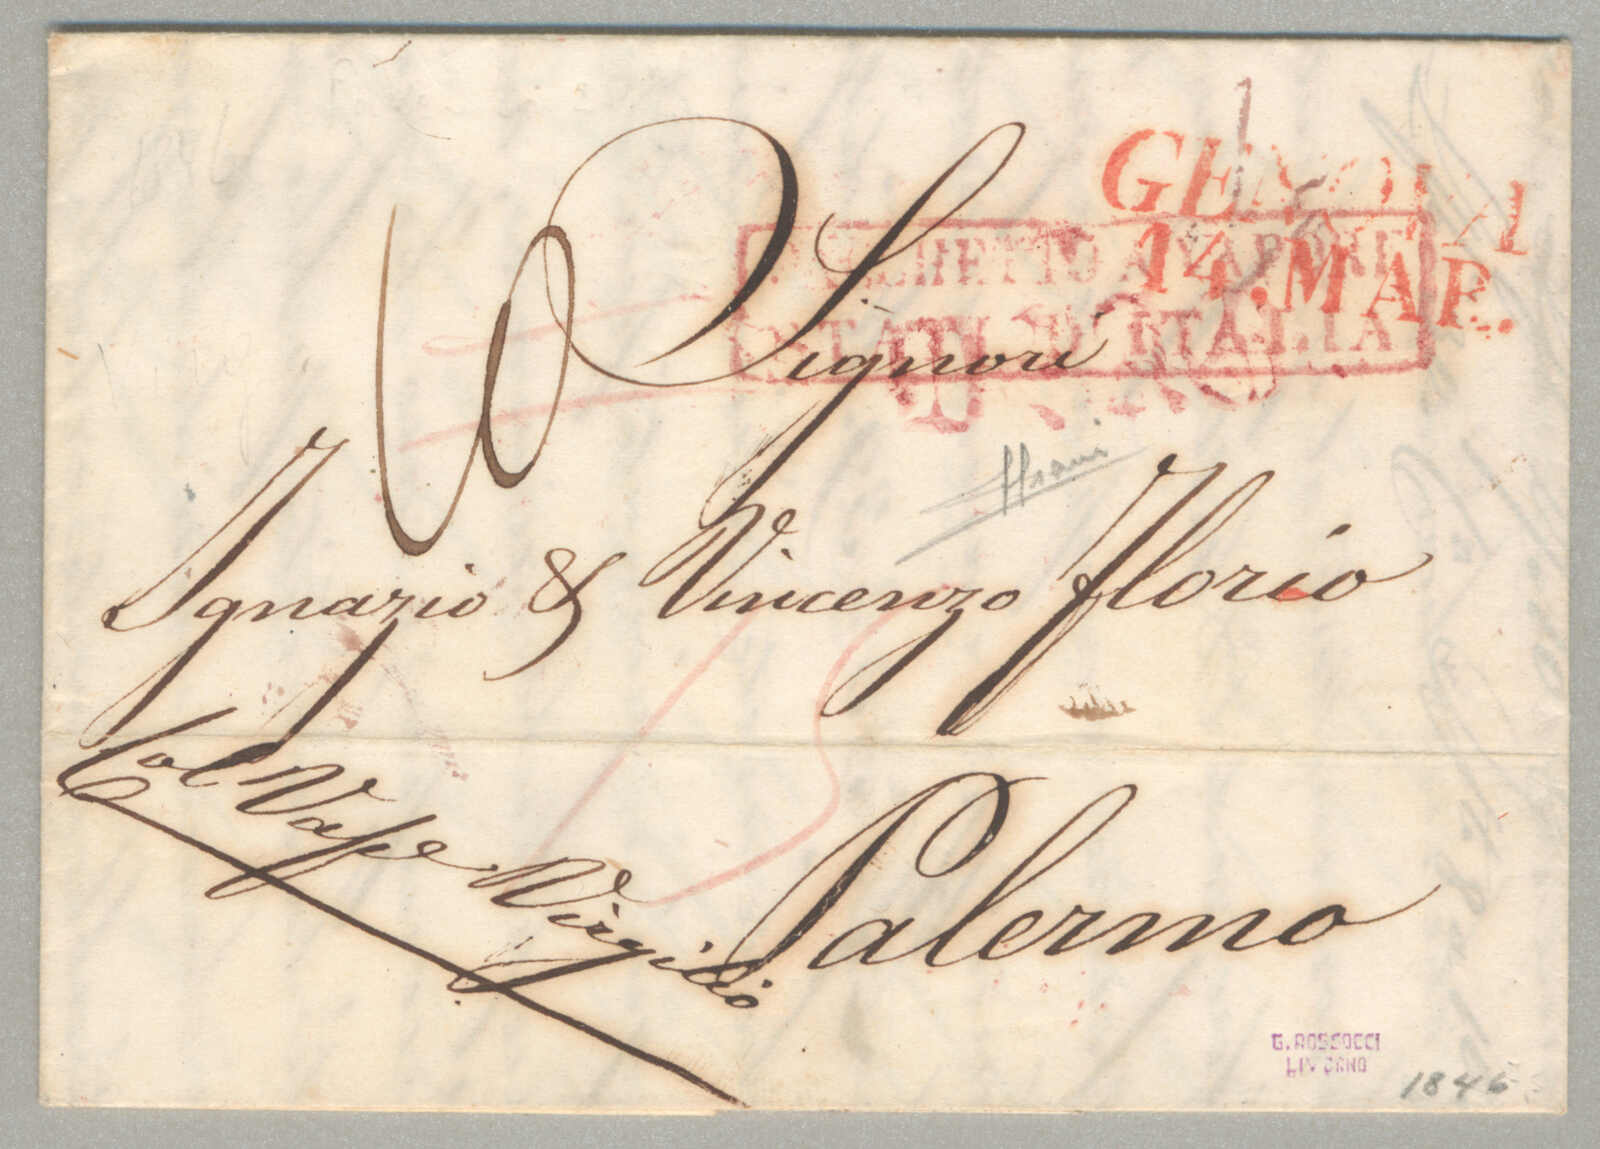 GENOVA
14. MAR.
PACCHETTO A VAPORE
STATI D'ITALIA
Signori
Ignazio & Vincenzo Florio
Col Vap.e Virgilio
Palermo
G. ROSSOCCI
LIVORNO
1846